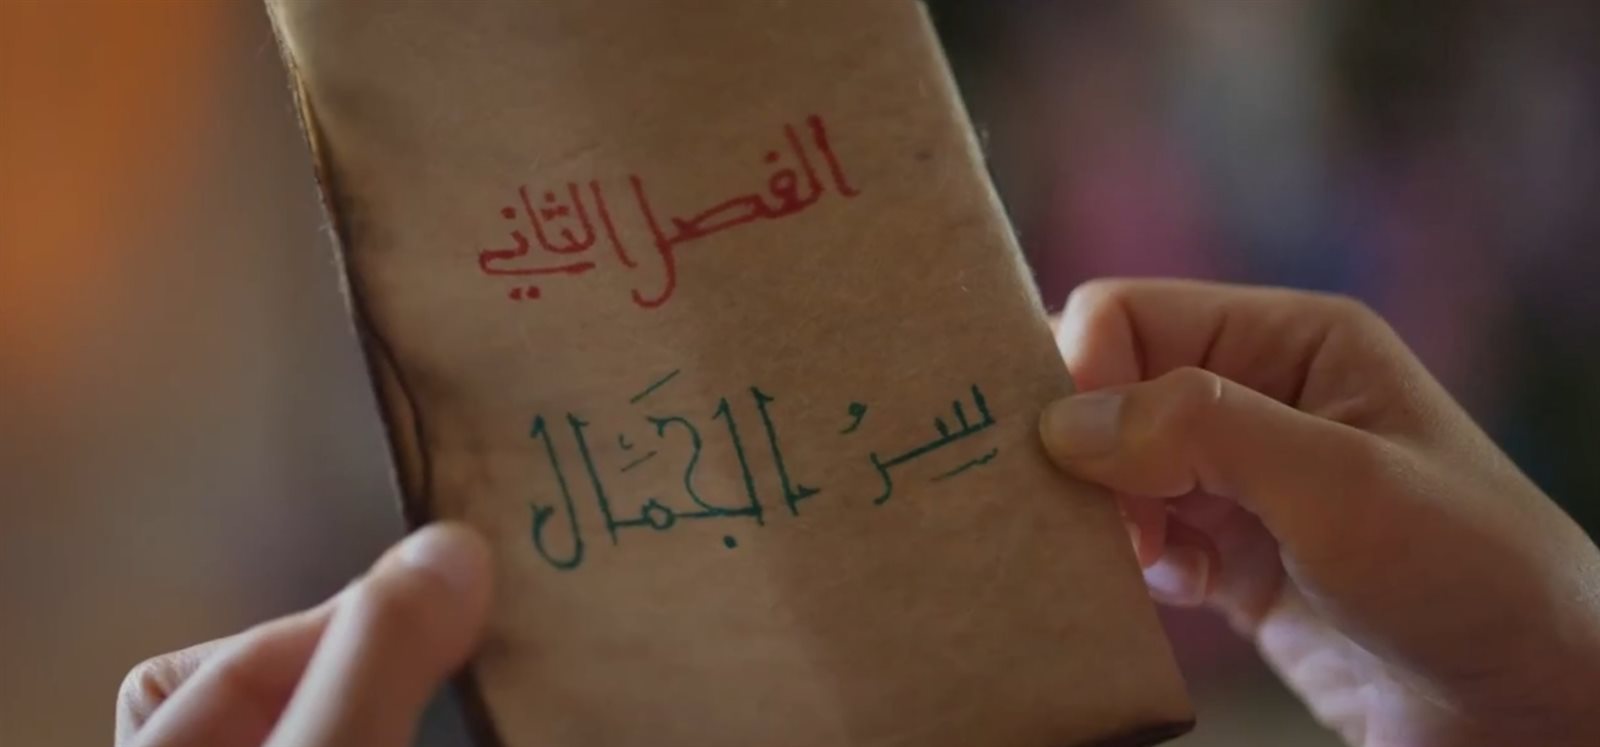 الفصل الثاني
سرُ الجَمَال